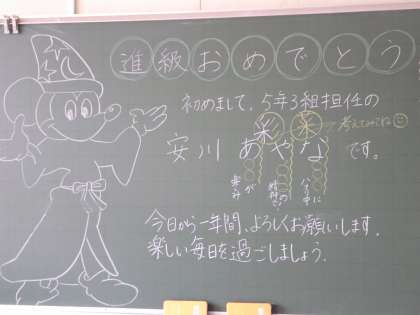 進級おめでとう
初めまして、5年3組担任の
安川 あやな です。
彩 菜
考えてみてね
今日から一年間、よろしくお願いします。
楽しい毎日を過ごしましょう。